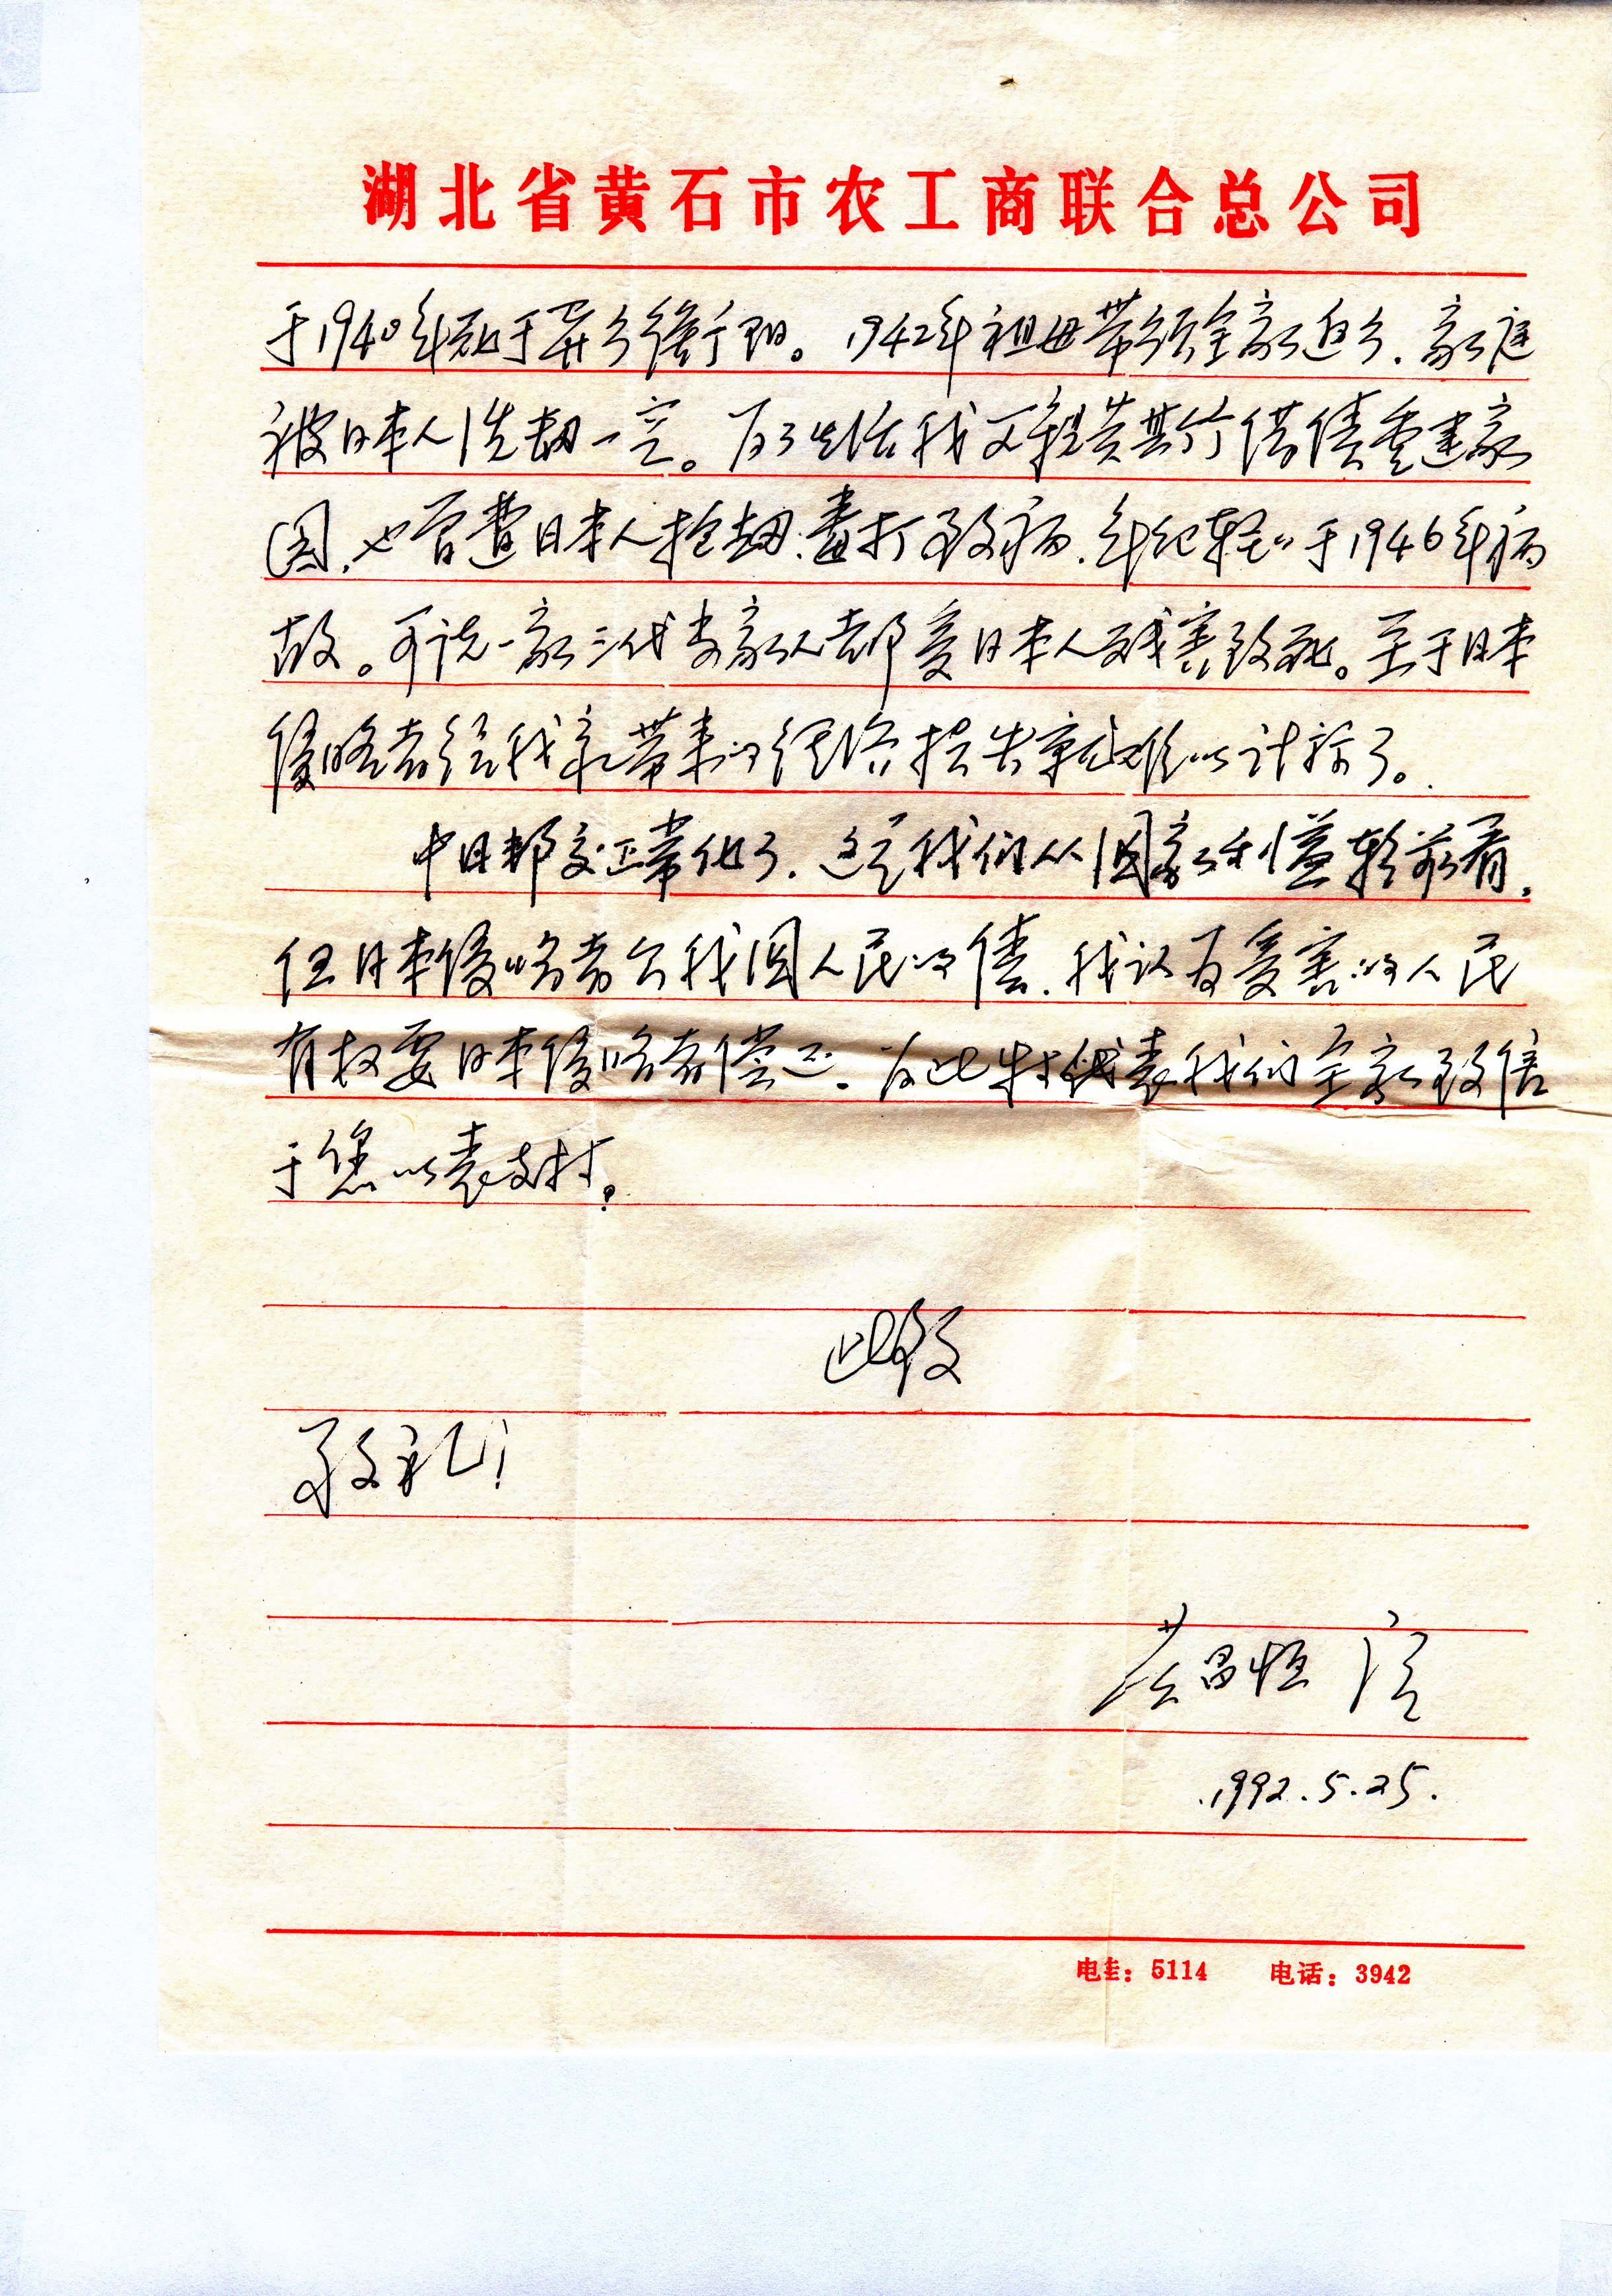 湖北省黄石市农工商联合总公司
于1940年死于异乡衡阳。1942年祖母带领全家返乡.家庭
被日本人洗劫一空。为了生活我父亲黄其竹借债重建家
园,也曾遭日本人抢劫.毒打致病.年纪轻轻于1946年病
故。可说一家三代当家人都受日本人残害致死。至于日本
侵略者给我家带来的经济损失就难以计算了。
中日邦交正常化了.这是我们从国家利益朝前看.
但日本侵略者欠我国人民的债.我认为受害的人民
有权要日本侵略者偿还.为此特代表我们全家致信
于您以表支持。
此致
敬礼!
黄昌恒
1992.5.25.
电挂:5114 电话:3942